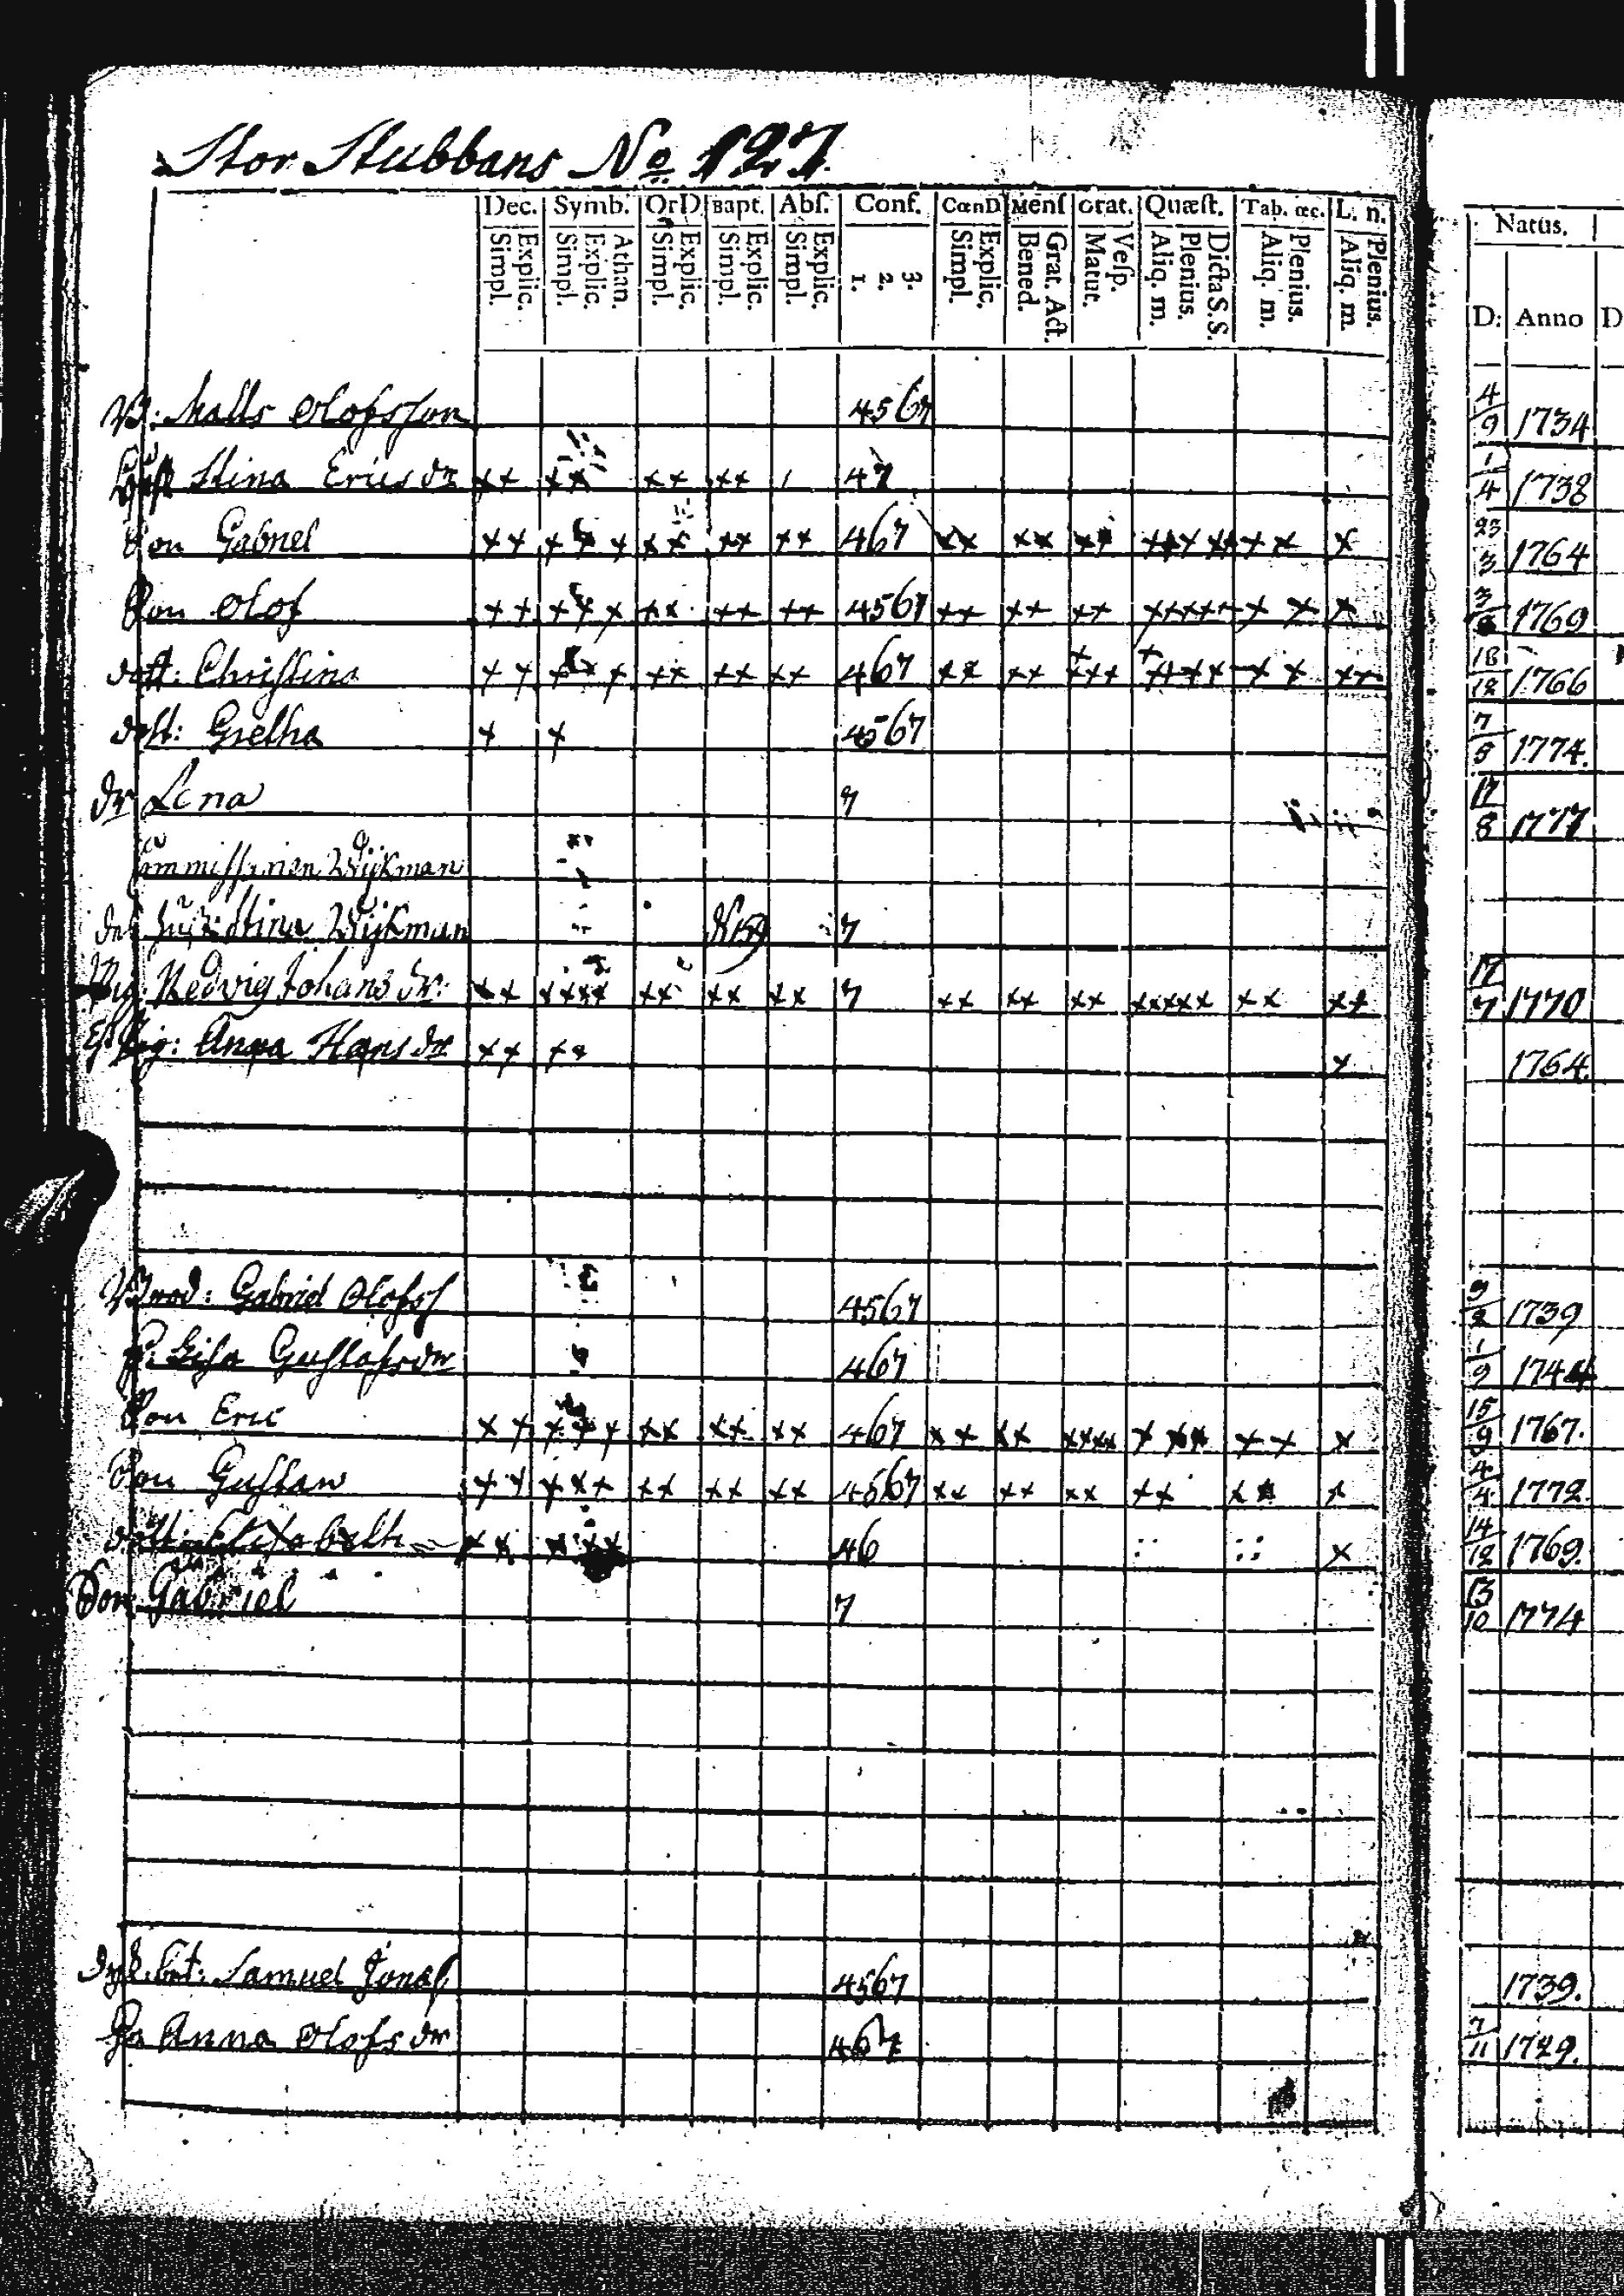 Stor Stubbans No 127.
Dec. Symb. OrD. Bapt. Abſ. Conf. CœnD. Menſ Orat. Quæſt. Tab. œc. L. n. Natus.
Explic. Simpl. Athan. Explic. Simpl. Explic. Simpl. Explic. Simpl. Explic. Simpl. 3. 2. 1. Explic. Simpl. Grat. Act. Bened. Veſp. Matut. Dicta S. S. Plenius. Aliq. m. Plenius. Aliq. m. Plenius. Aliq. m D: Anno D
B: Matts Olofsson 4567 4/9 1734
Stina Erics dr ×× ×× ×× ×× 47 1/4 1738
Son Gabriel ×× ××× ×× ×× ×× 467 ×× ×× ×× ××××× ×× × 23/3 1764
Son Olof ×× ××× ×× ×× ×× 4567 ×× ×× ×× ××××× ×× × 1769
dott: Christina ×× ××× ×× ×× ×× 467 ×× ×× ××× ××××× ×× ×× 18/12 1766
dott: Gretha × × 4567 7/8 1774.
dr Lena 7 17/8 1777
Wijkman
Stina Wijkman 7
Hedvig Johans dr: ×× ×××× ×× ×× ×× 7 ×× ×× ×× ××××× ×× ×× 17/7 1770
Pig: Anna Hans dr ×× ×× × 1764.
Gabriel Olofss 4567 1739
H. Lisa Gustafsdr 467 1/9 1744
Son Eric ×× ××× ×× ×× ×× 467 ×× ×× ×××× ××× ×× × 15/9 1767.
Son Gustav ×× ××× ×× ×× ×× 4567 ×× ×× ×× ×× ×× × 4/4 1772.
×× 46 × 14/12 1769.
Son Gabriel 7 13/10 1774
Samuel Jonas 4567 1739.
Anna Olofs dr 467 7/11 1729.